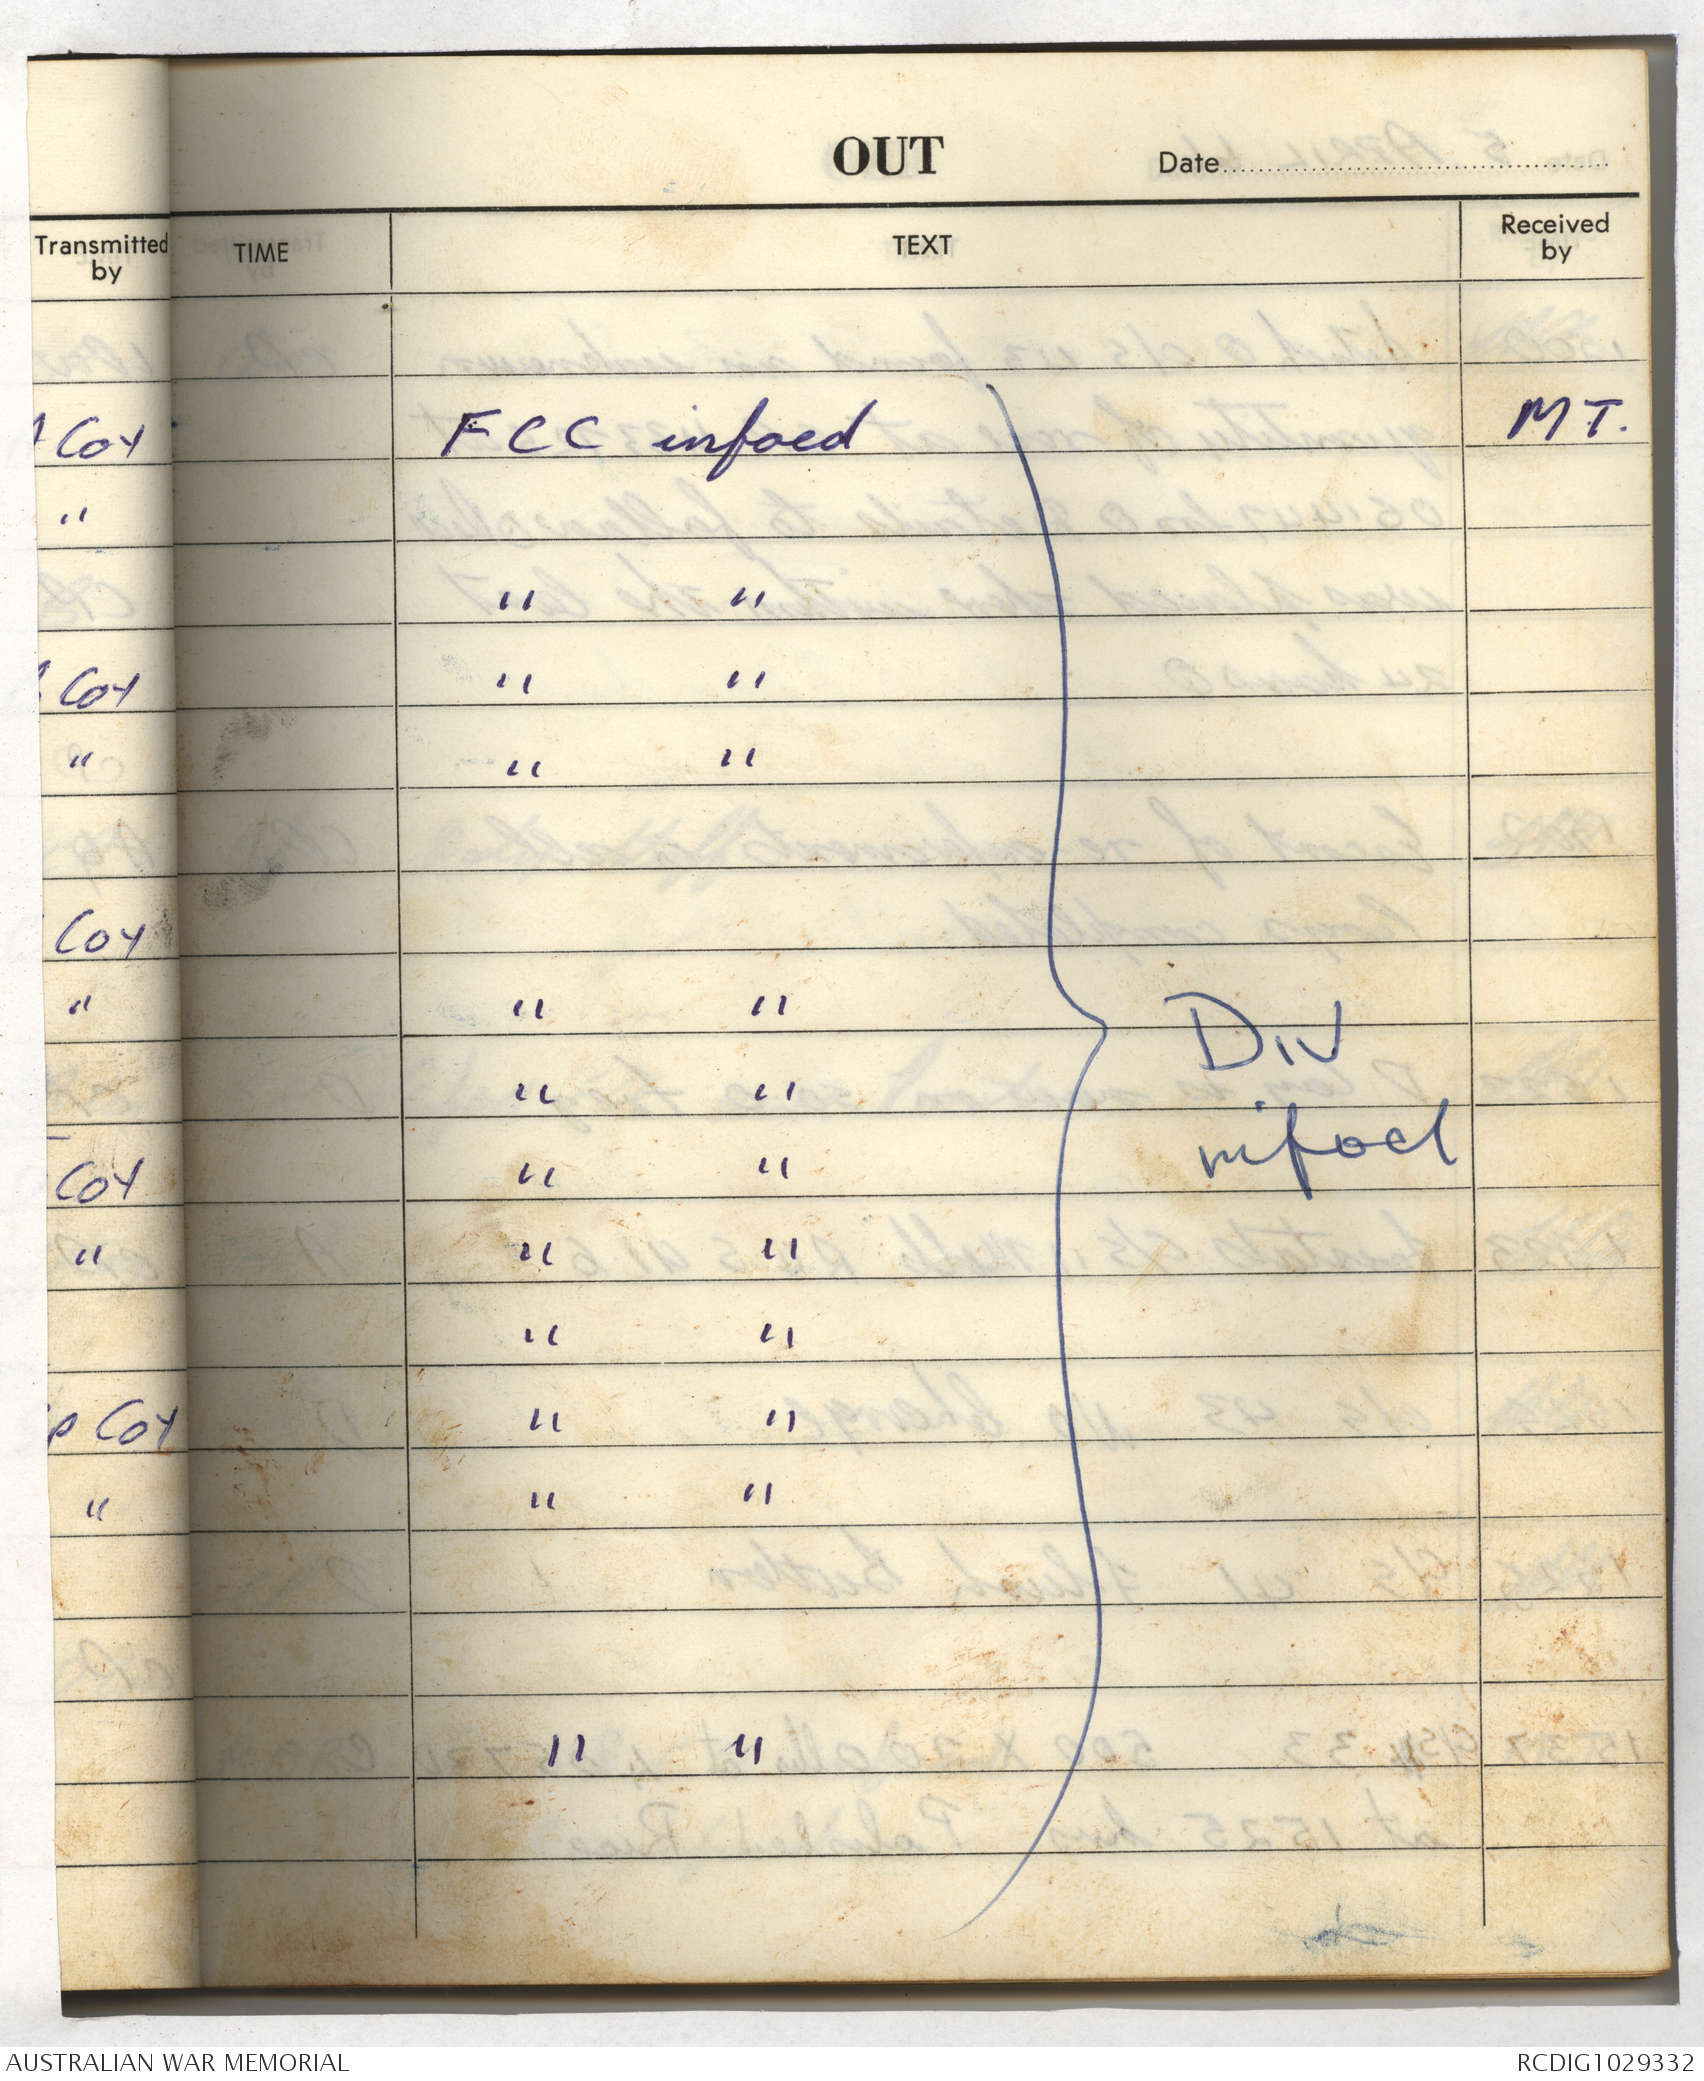 OUT
Date
Transmitted by
TIME
TEXT
Received by
Coy
FCC infoed
MT.
"
" "
Coy " "
" " "
Coy
" " "
Div
" "
infoed
Coy " "
" " "
" "
Coy " "
" " "
" "
AUSTRALIAN WAR MEMORIAL
RCDIG1029332